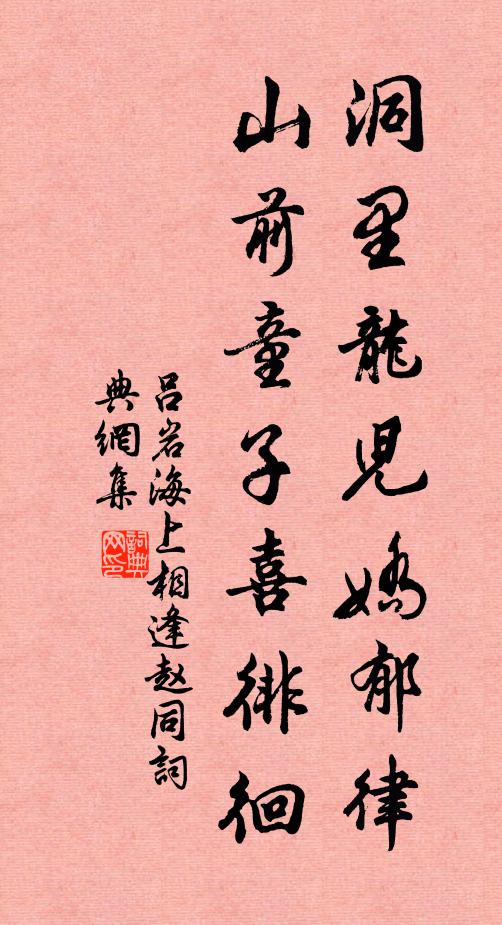 洞里龍兒嬌郁律
山前童子喜徘徊
吕岩海上相逢赵同詞
典網集
詞典
网印